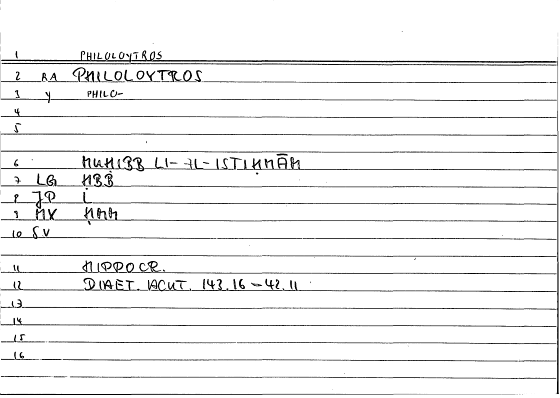 1 PHILOLOYTROS
2 RA PHILOLOYTROS
3 Y PHILO-
4
5
6 MUḤIBB LI- ʾL- ISTIḤMĀM
7 LG ḤBB
8 JP L
9 MX ḤMM
10 SV
11 HIPPOCR.
12 DIAET. ACUT. 143.16 – 42.11
13
14
15
16